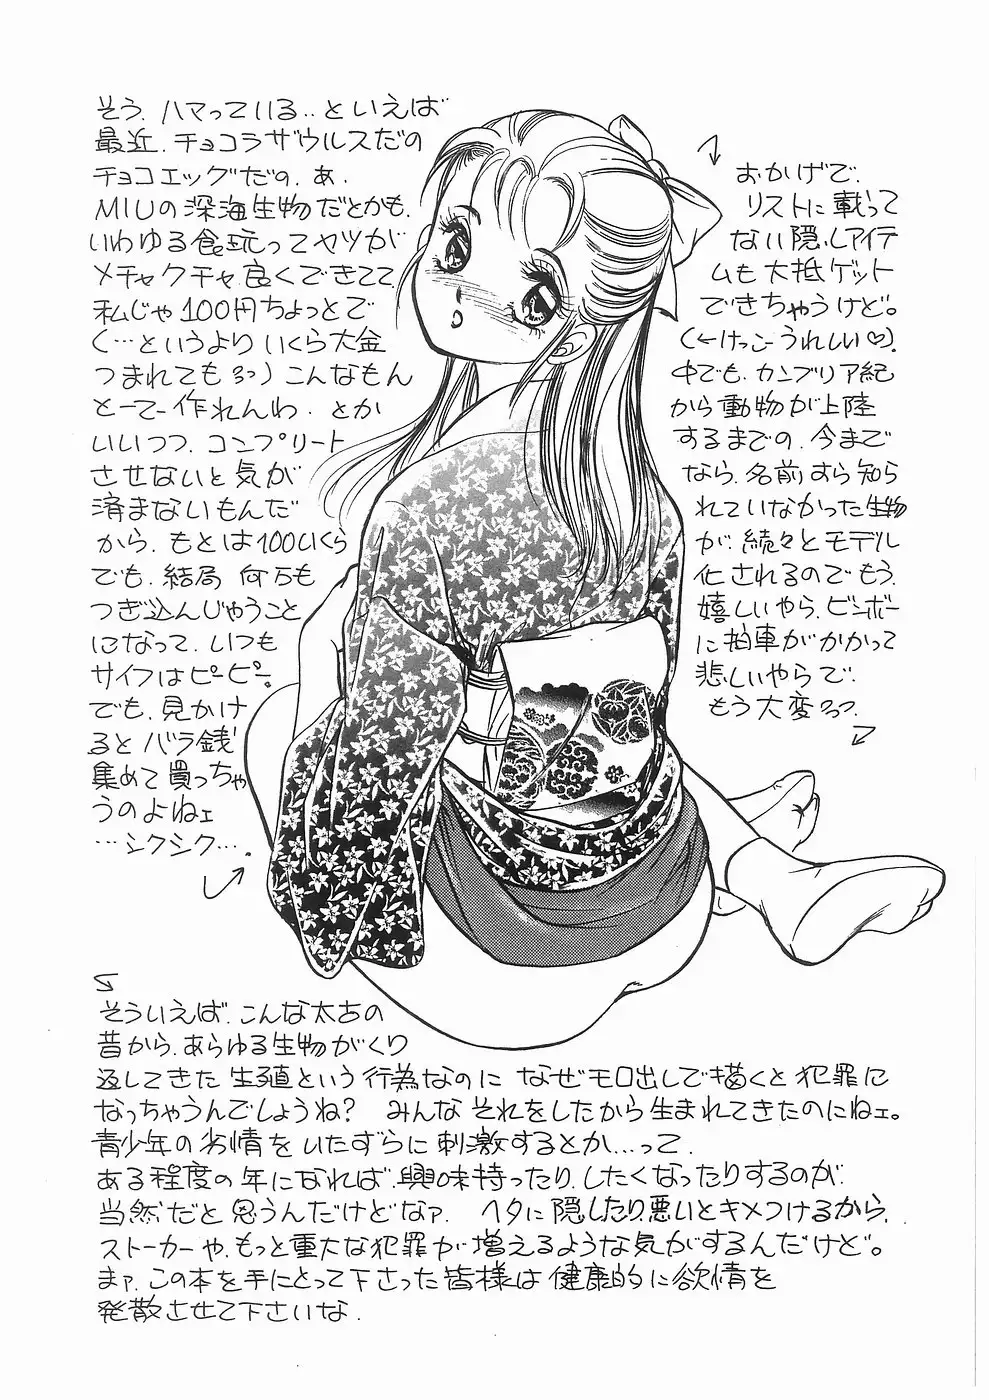 そう、ハマっている‥といえば
最近、チョコラザウルスだの
チョコエッグだの、あ、
MIUの深海生物だとかも、
いわゆる食玩ってヤツが
メチャクチャ良くできてて、
私じゃ100円ちょっとで
く…というよりいくら大金
つまれても😣）こんなもん
とーてー作れんわ、とか
いいつつ、コンプリート
させないと気が
済まないもんだ
から、もとは100いくら
でも、結局 何万も
つぎ込んじゃうこと
になって、いつも
サイフはピーピー。
でも、見かけ
るとバラ銭
集めて買っちゃ
うのよねェ
…シクシク…。
おかげで、
リストに載って
ない隠しアイテ
ムも大抵ゲット
できちゃうけど。
(←けっこーうれしい♡)。
中でも、カンブリア紀
から動物が上陸
するまでの、今まで
なら、名前すら知ら
れていなかった生物
が、続々とモデル
化されるのでもう、
嬉しいやら、ビンボー
に拍車がかかって
悲しいやらで、
もう大変
そういえば、こんな太古の
昔から、あらゆる生物がくり
返してきた生殖という行為なのに なぜモロ出しで描くと犯罪に
なっちゃうんでしょうね? みんなそれをしたから生まれてきたのにねェ。
青少年の劣情をいたずらに刺激するとか…って、
ある程度の年になれば、興味持ったり、したくなったりするのが、
当然だと思うんだけどなァ、 ヘタに隠したり、悪いとキメつけるから、
ストーカーや、もっと重大な犯罪が増えるような気がするんだけど。
まァ、この本を手にとって下さった皆様は健康的に欲情を
発散させて下さいな。